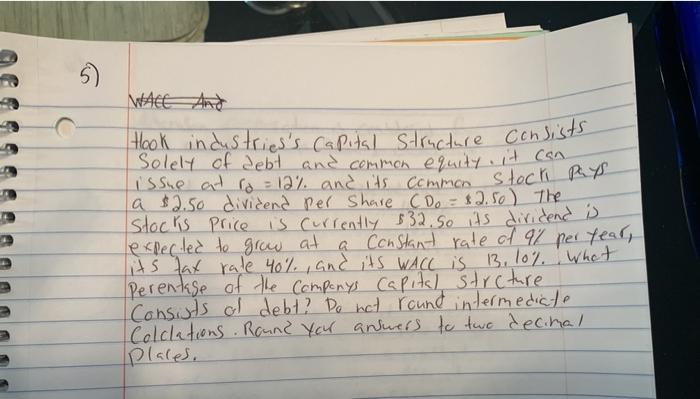 5)
WACC And
Hook industries's Capital Structure Consists
Solely of debt and common equity. it can
issue at rd = 12%. and its Common Stock Pays
a $2.50 dividend per share (D0 = $2.50) The
Stocks Price is Currently $32.50 its dividend is
expected to grow at a Constant rate of 9% per year,
its tax rate 40%., and its WACC is 13.10%.. What
Perentage of the Companys Capital Strcture
Consists of debt? Do not round intermedicte
Colclations. Round your answers to two decimal
Places.